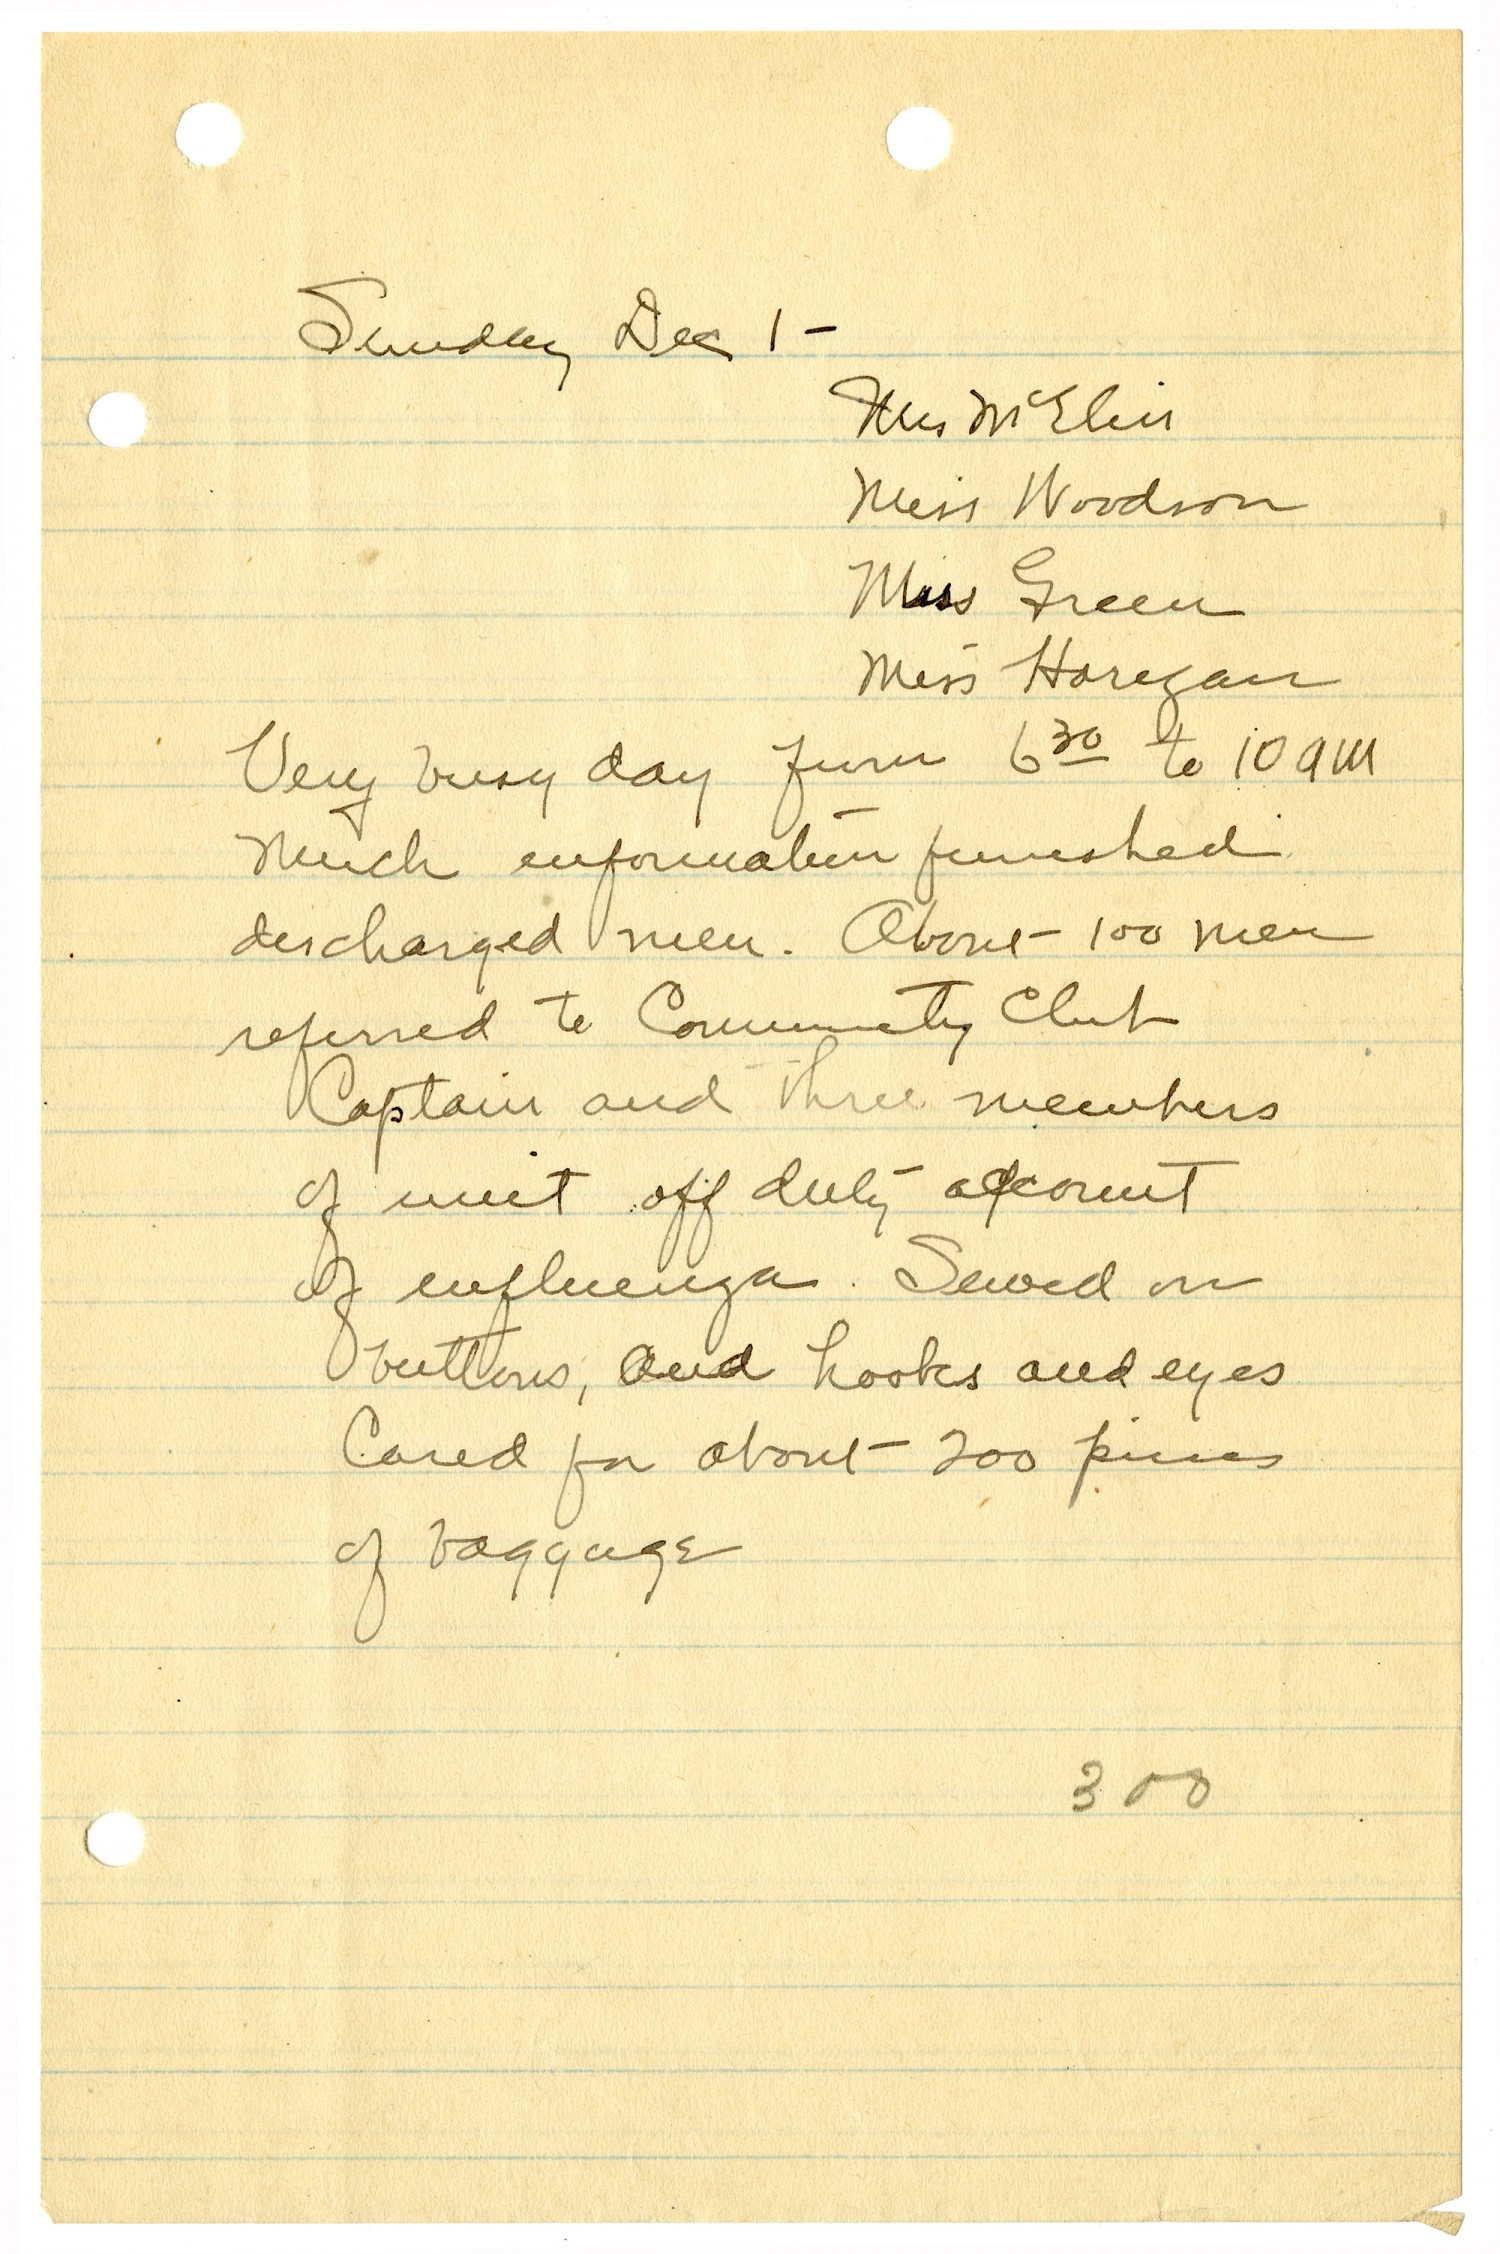 Sunday Dec 1 -
Mrs
Miss Woodson
Miss Green
Miss Horegan
Very busy day from 6 30 to 10 am
Much information furnished
discharged men. About 100 men
referred to Community Club
Captain and three members
of unit off duty account
of influenza. Sewed on
buttons, and hooks and eyes
Cared for about 200 pieces
of baggage
300